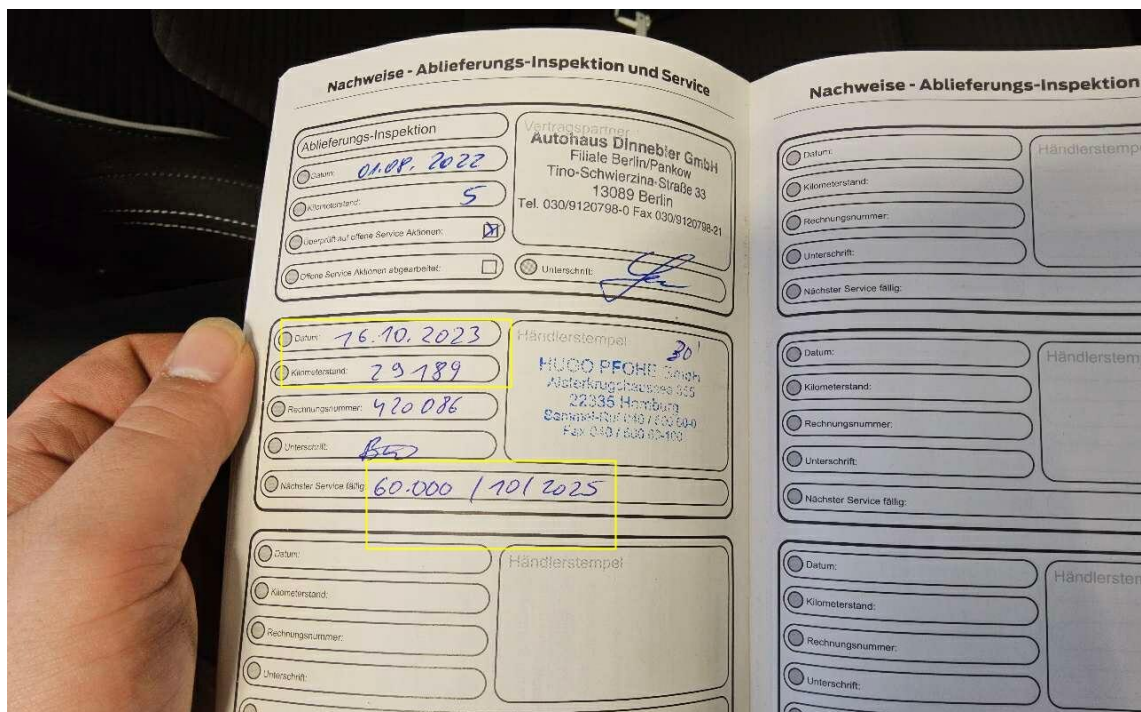 Nachweise - Ablieferungs-Inspektion und Service
Ablieferungs-Inspektion
Datum: 01.08.2022
Kilometerstand: 5
Überprüft auf offene Service Aktionen:
Offene Service Aktionen abgearbeitet:
Vertragspartner
Autohaus Dinnebier GmbH
Filiale Berlin/Pankow
Tino-Schwierzina-Straße 33
13089 Berlin
Tel. 030/9120798-0 Fax 030/9120798-21
Unterschrift:
Datum: 16.10.2023
Kilometerstand: 29189
Rechnungsnummer: 420086
Unterschrift:
Nächster Service fällig: 60.000 / 10 / 2025
Händlerstempel
30'
HUGO PFOHE GmbH
Alsterkrugchaussee 355
22335 Hamburg
Fax 040 / 500 60-100
Datum:
Kilometerstand:
Rechnungsnummer:
Unterschrift:
Händlerstempel
Nachweise - Ablieferungs-Inspektion
Datum:
Kilometerstand:
Rechnungsnummer:
Unterschrift:
Nächster Service fällig:
Händlerstempe
Datum:
Kilometerstand:
Rechnungsnummer:
Unterschrift:
Nächster Service fällig:
Händlerstem
Datum:
Kilometerstand:
Rechnungsnummer:
Unterschrift:
Händlerster